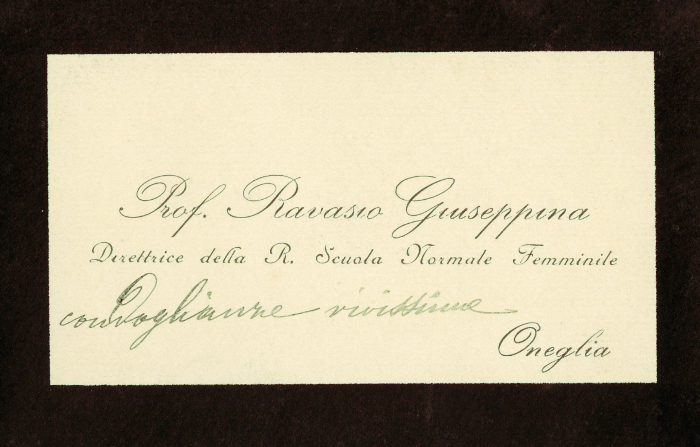 Prof. Ravasio Giuseppina
Direttrice della R. Scuola Normale Femminile
condoglianze vivissime
Oneglia